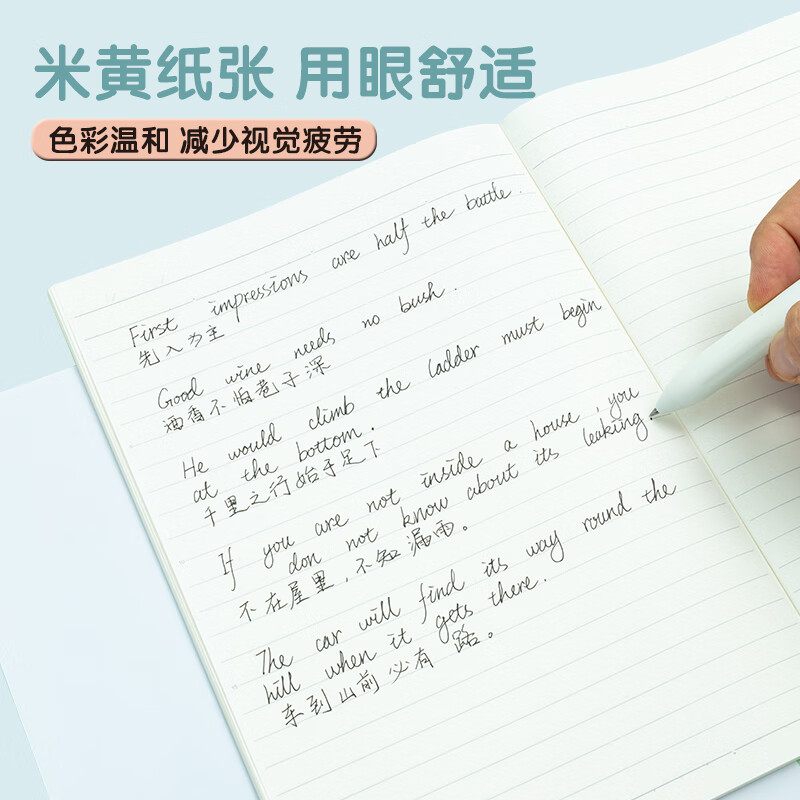 米黄纸张 用眼舒适
色彩温和 减少视觉疲劳
First impressions are half the battle.
先入为主
Good wine needs no bush.
酒香不怕巷子深
He would climb the ladder must begin
at the bottom.
千里之行始于足下
If you are not inside a house, you
don not know about its leaking.
不在屋里,不知漏雨。
The car will find its way round the
hill when it gets there.
车到山前必有路。